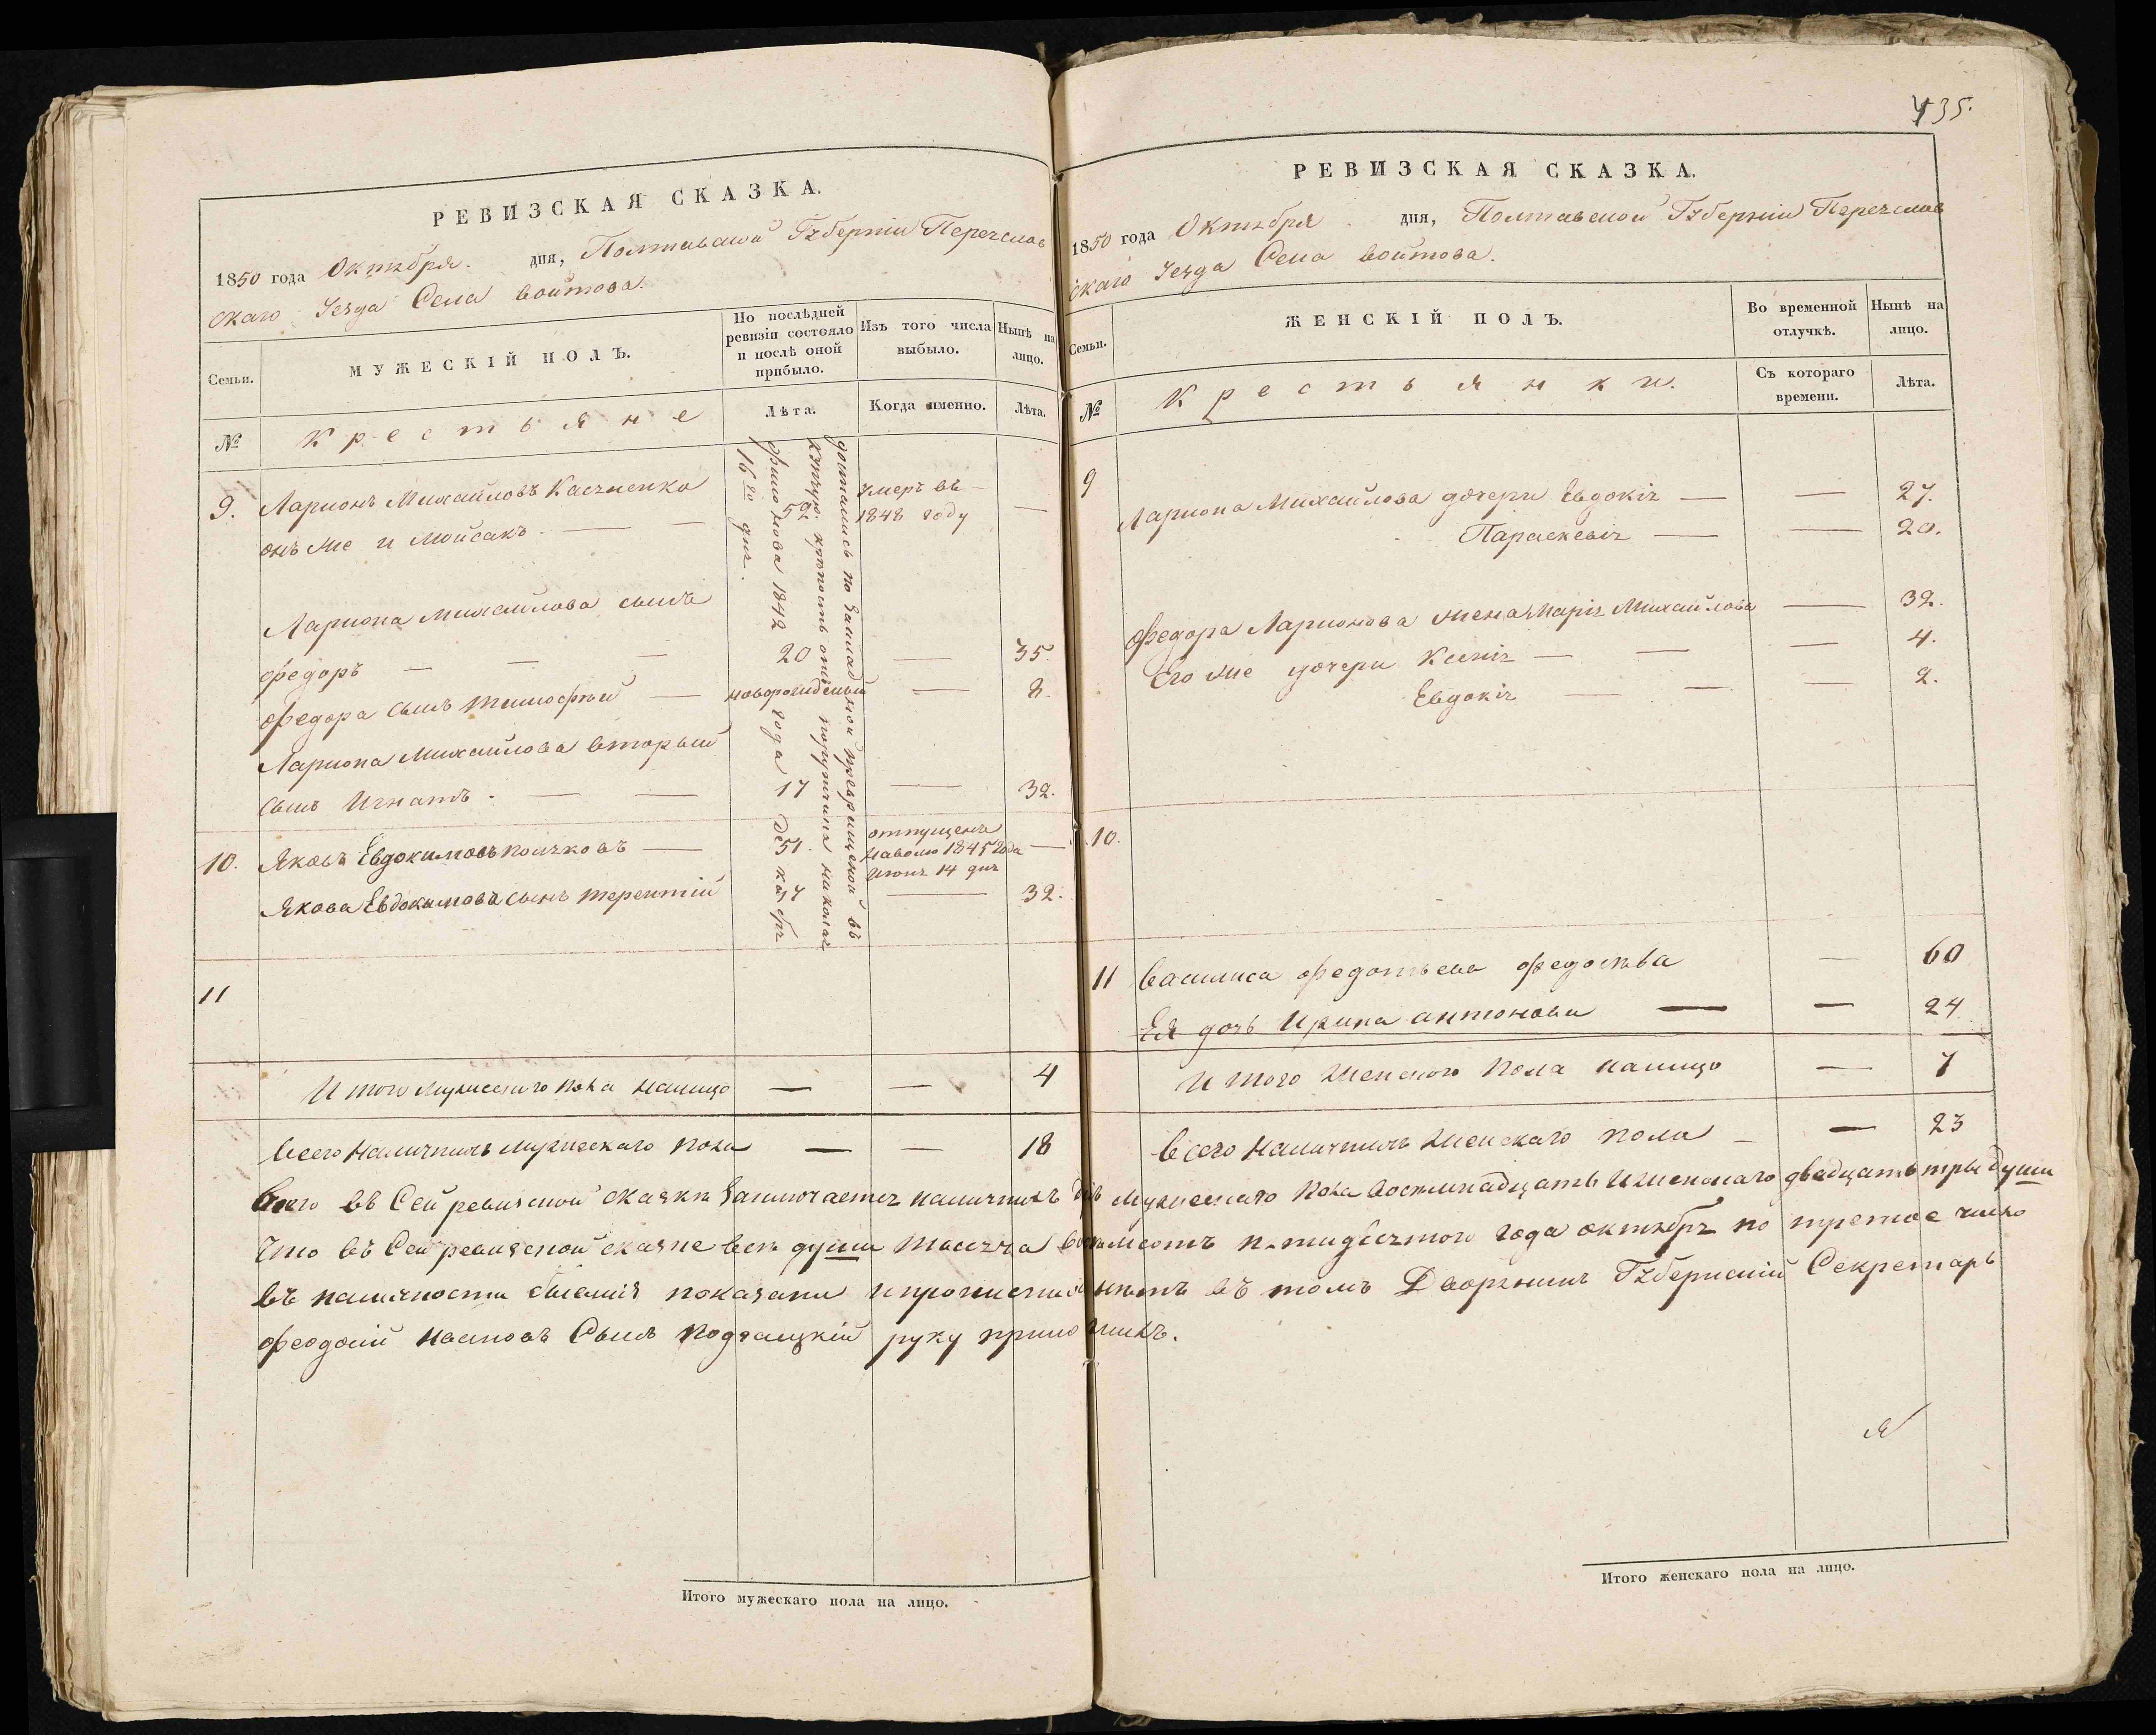 435.
РЕВИЗСКАЯ СКАЗКА.
1850 года Октября дня, Полтавской Губерніи Переяслав
скаго Уезда Села Войтова.
Семьи.
МУЖЕСКІЙ ПОЛЪ.
По послѣдней ревизіи состояло и послѣ оной прибыло.
Изъ того числа выбыло.
Нынѣ на лицо.
№
Крестьяне
Лѣта.
Когда именно.
Лѣта.
9. Ларионъ Михайловъ 52 умеръ въ —
онъ же и Мойсакъ — — 1848 году
Лариона Михайлова сынъ
Федоръ — — — 20 — 35
Федора сынъ Тимофѣй — новорожденый — 8.
Лариона Михайлова вторый
сынъ Игнатъ — — 17 — 32.
10. Яковъ Евдокимовъ — 51. отпущенъ
на волю 1845 года —
Июня 14 дня
Якова Евдокимова сынъ Терентій 17 — 32.
достались по Закладной превращеной въ
купчую крѣпость отъ поручика Николая
1842 года декабря
16 го дня.
11
Итого Мужескаго пола налицо — — 4
Всего Наличныхъ мужескаго пола — — 18
РЕВИЗСКАЯ СКАЗКА.
1850 года Октября дня, Полтавской Губерніи Переяслав
скаго Уезда Села Войтова.
Семьи.
ЖЕНСКІЙ ПОЛЪ.
Во временной отлучкѣ.
Нынѣ на лицо.
№
Крестьянки.
Съ котораго времени.
Лѣта.
9 Лариона Михайлова дочери Евдокія — — 27.
Параскевія — — 20.
Федора Ларионова жена Марія Михайлова — 32.
Его же дочери Ксенія — — — 4.
Евдокія — — — 2.
10.
11 Василиса Федотьева — 60
Ея дочь Ирина Антонова — — 24
Итого Женского Пола налицо — 7
Всего Наличныхъ женскаго пола — — 23
Всего въ Сей ревизской сказкѣ Заключается наличныхъ душъ Мужескаго пола восемнадцать и женскаго двадцать три души
Что въ Сей ревизской сказке все души тысяча восемсотъ пятидесятого года октября по третое число
въ наличности бывшія показаны и прописныхъ нѣтъ въ томъ Дворянинъ Губернскій Секретарь
Феодосій Ивановъ Сынъ руку приложилъ.
Итого мужескаго пола на лицо.
Итого женскаго пола на лицо.